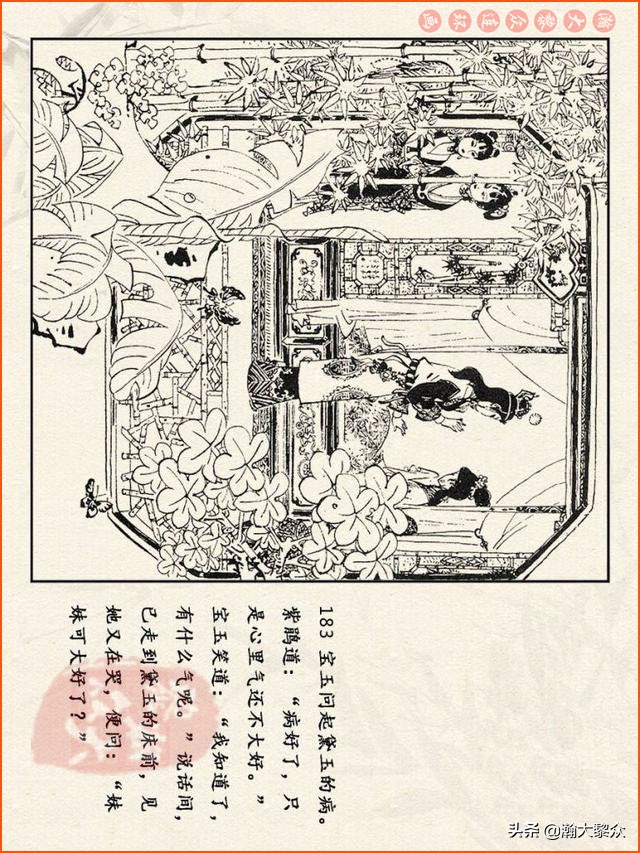 瀚大黎众连环画
183 宝玉问起黛玉的病。
紫鹃道：“病好了，只
是心里气还不大好。”
宝玉笑道：“我知道了，
有什么气呢。”说话间，
已走到黛玉的床前，见
她又在哭，便问：“妹
妹可大好了？”
头条 @瀚大黎众